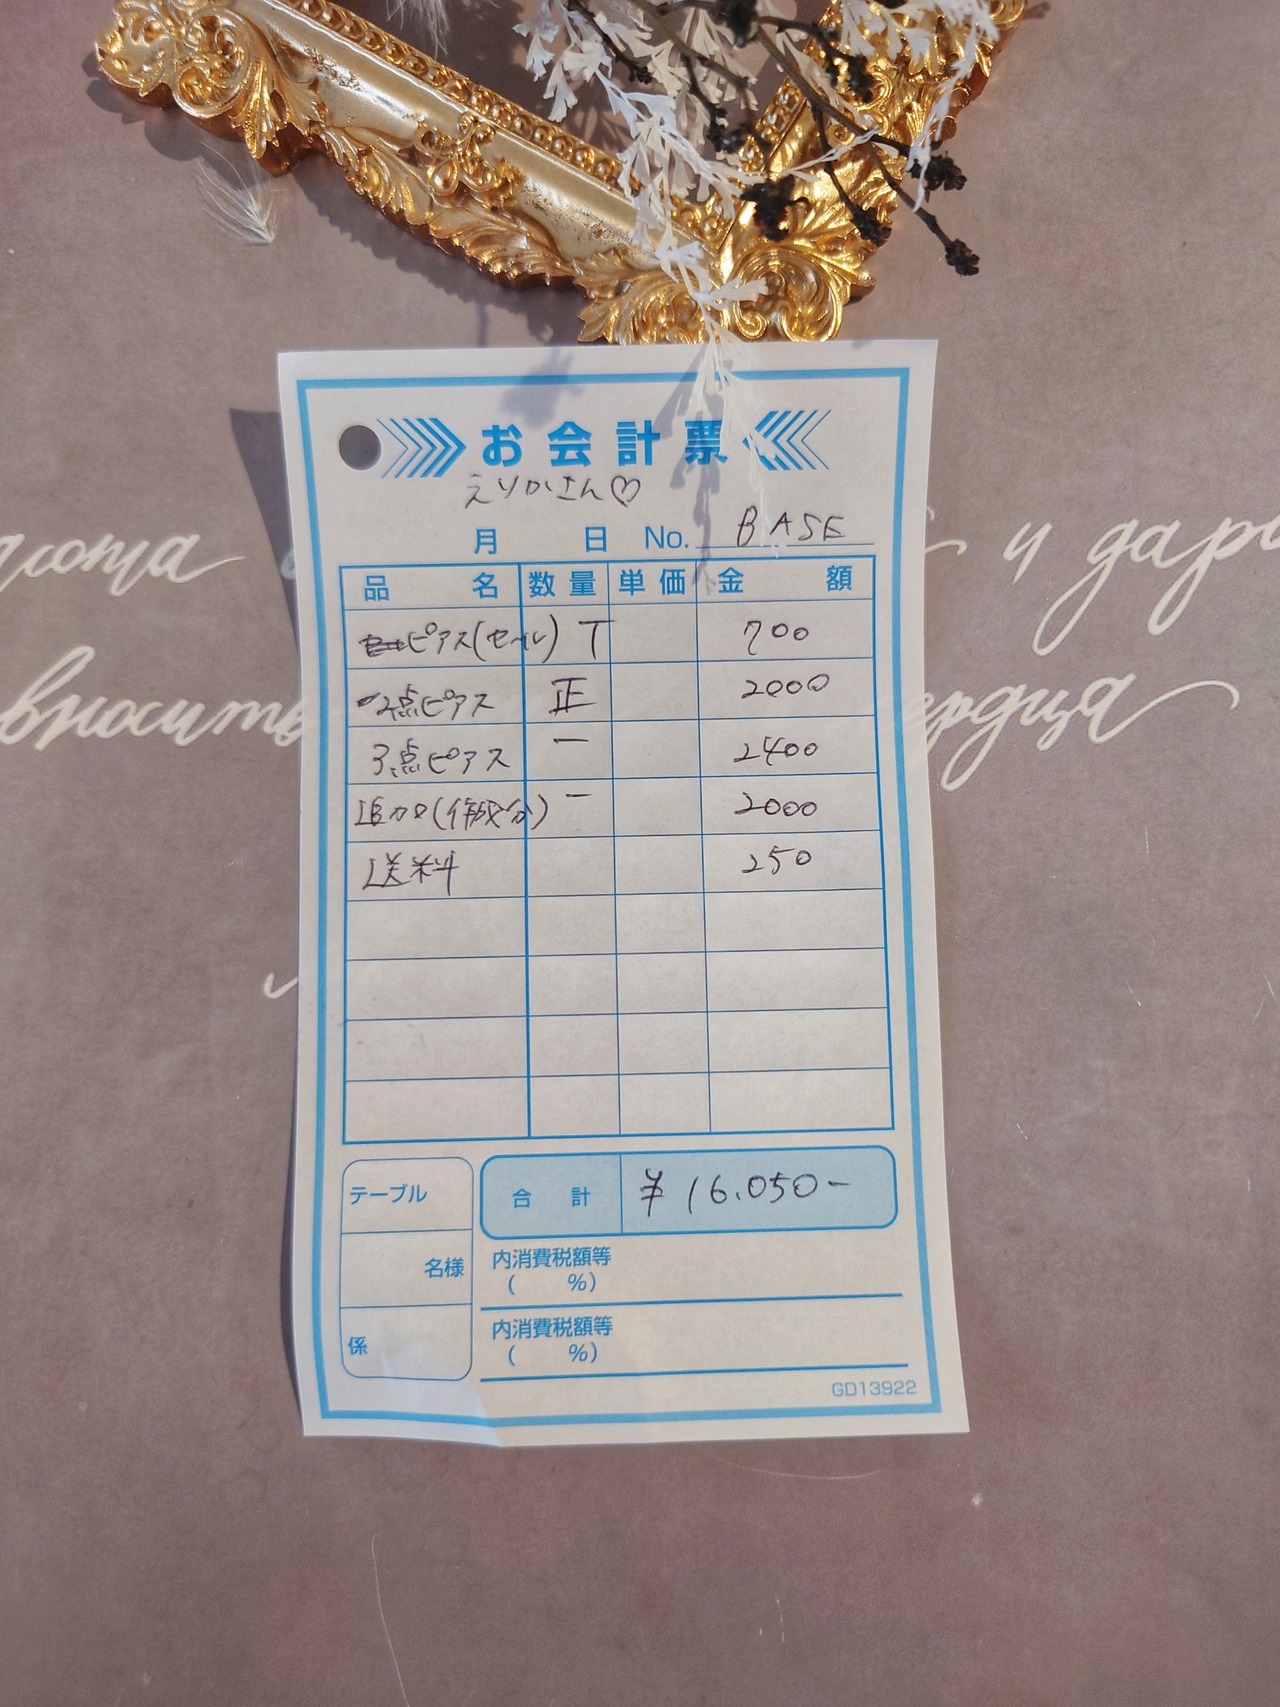 お会計票
えりかさん♡
月 日 No. BASE
品名 数量 単価 金額
ピアス(セール) T 700
2点ピアス 正 2000
3点ピアス 一 2400
追加(作成分) 一 2000
送料 250
合計 ¥16.050-
テーブル
名様
係
内消費税額等
( %)
内消費税額等
( %)
GD13922
и дари
вносить
ердца